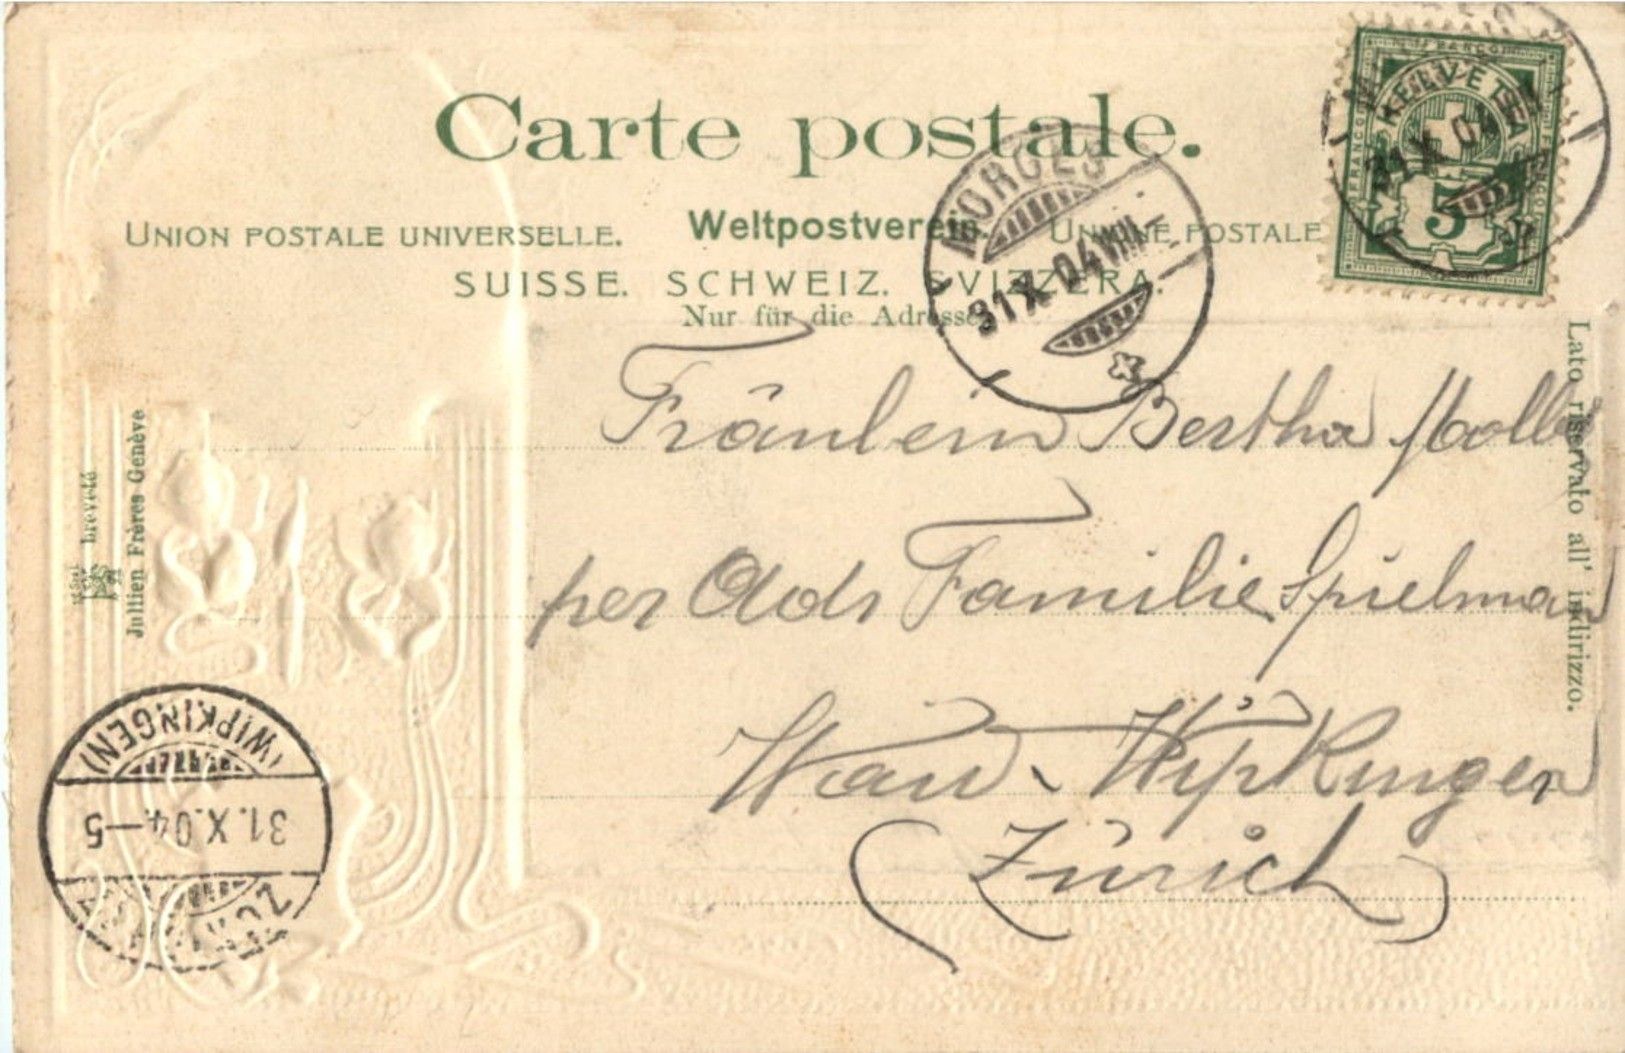 Carte postale.
UNION POSTALE UNIVERSELLE. Weltpostverein. UNIONE POSTALE
SUISSE. SCHWEIZ. SVIZZERA.
Nur für die Adresse.
HELVETIA
FRANCO
5
31 X 04
MORGES
31 X 04 VIII
Fräulein Bertha
per Adr Familie Spielman
Wipkingen
(Zürich)
Lato riservato all' indirizzo.
breveté
Jullien Frères Genève
(WIPKINGEN)
31.X.04.-5
ZÜRICH